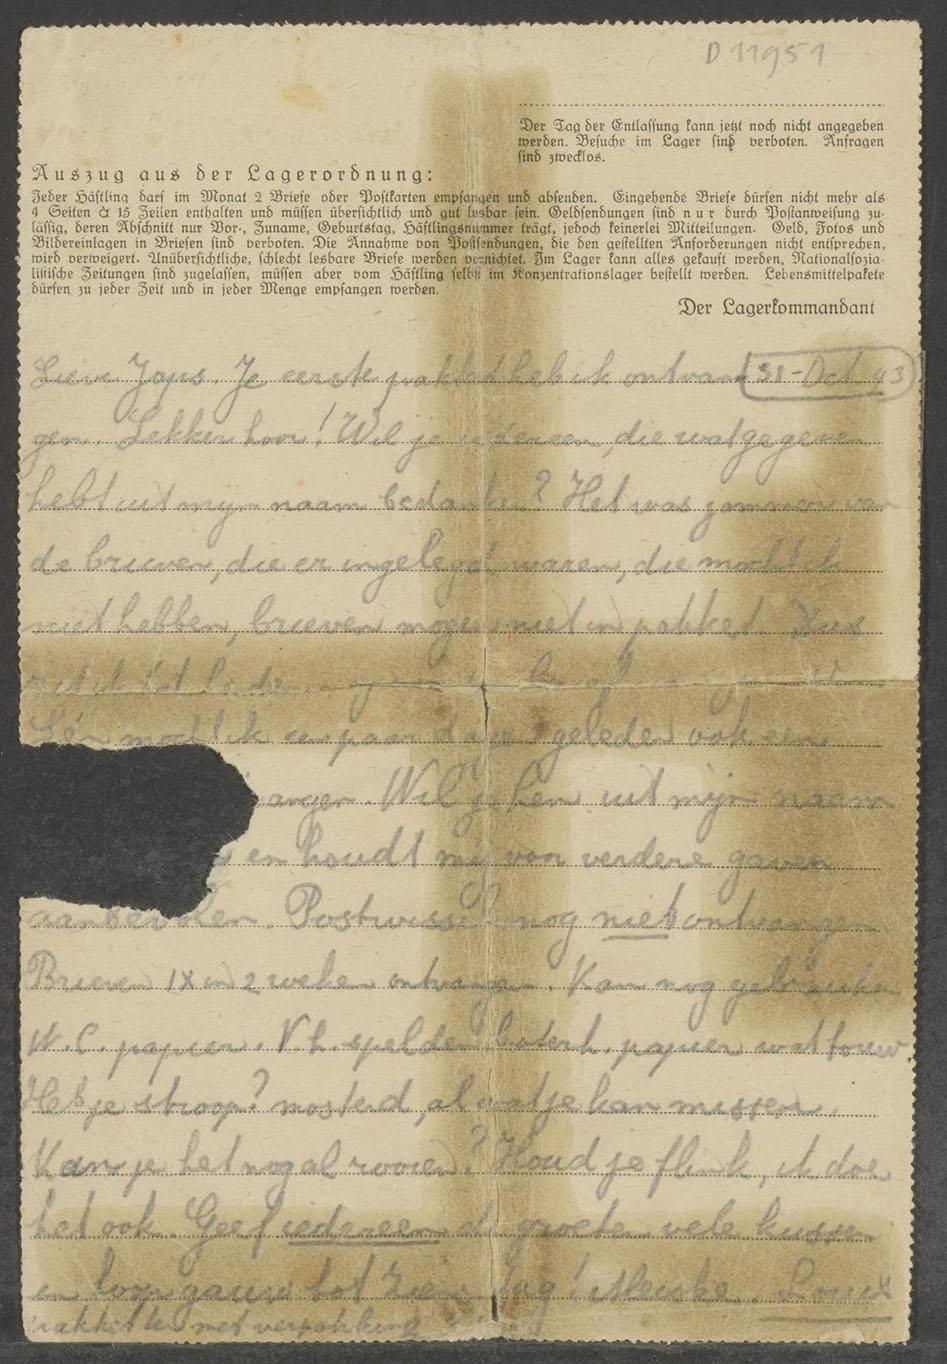 D 11951
Der Tag der Entlassung kann jetzt noch nicht angegeben
werden. Besuche im Lager sind verboten. Anfragen
sind zwecklos.
Auszug aus der Lagerordnung:
Jeder Häftling darf im Monat 2 Briefe oder Postkarten empfangen und absenden. Eingehende Briefe dürfen nicht mehr als
4 Seiten à 15 Zeilen enthalten und müssen übersichtlich und gut lesbar sein. Geldsendungen sind nur durch Postanweisung zu-
lässig, deren Abschnitt nur Vor-, Zuname, Geburtstag, Häftlingsnummer trägt, jedoch keinerlei Mitteilungen. Geld, Fotos und
Bildereinlagen in Briefen sind verboten. Die Annahme von Postsendungen, die den gestellten Anforderungen nicht entsprechen,
wird verweigert. Unübersichtliche, schlecht lesbare Briefe werden vernichtet. Im Lager kann alles gekauft werden, Nationalsozia-
listische Zeitungen sind zugelassen, müssen aber vom Häftling selbst im Konzentrationslager bestellt werden. Lebensmittelpakete
dürfen zu jeder Zeit und in jeder Menge empfangen werden.
Der Lagerkommandant
31-Oct 43
Lieve Je eerste pakket heb ik ontvan
gen. Lekker hoor! Wil je iedereen, die wat gegeven
hebt uit mijn naam bedanken? Het was jammer van
de brieven, die er ingelegd waren, die mocht ik
niet hebben, brieven mogen niet in pakket. Dus
mocht ik een paar dagen geleden ook een
angen. Wil je hen uit mijn naam
en houdt mij voor verdere gaven
aanbevolen. Postwissel nog niet ontvangen.
Brieven 1x in 2 weken ontvangen. Kan nog gebruiken
W.C. papier. V.h. spelden boterh. papier wat touw.
Heb je stroop? mosterd, al wat je kan missen.
Kan je het nog al rooien? Houd je flink, ik doe
het ook. Geef iedereen de groeten vele kussen
en loop gauw tot ziens dag!
met verpakking